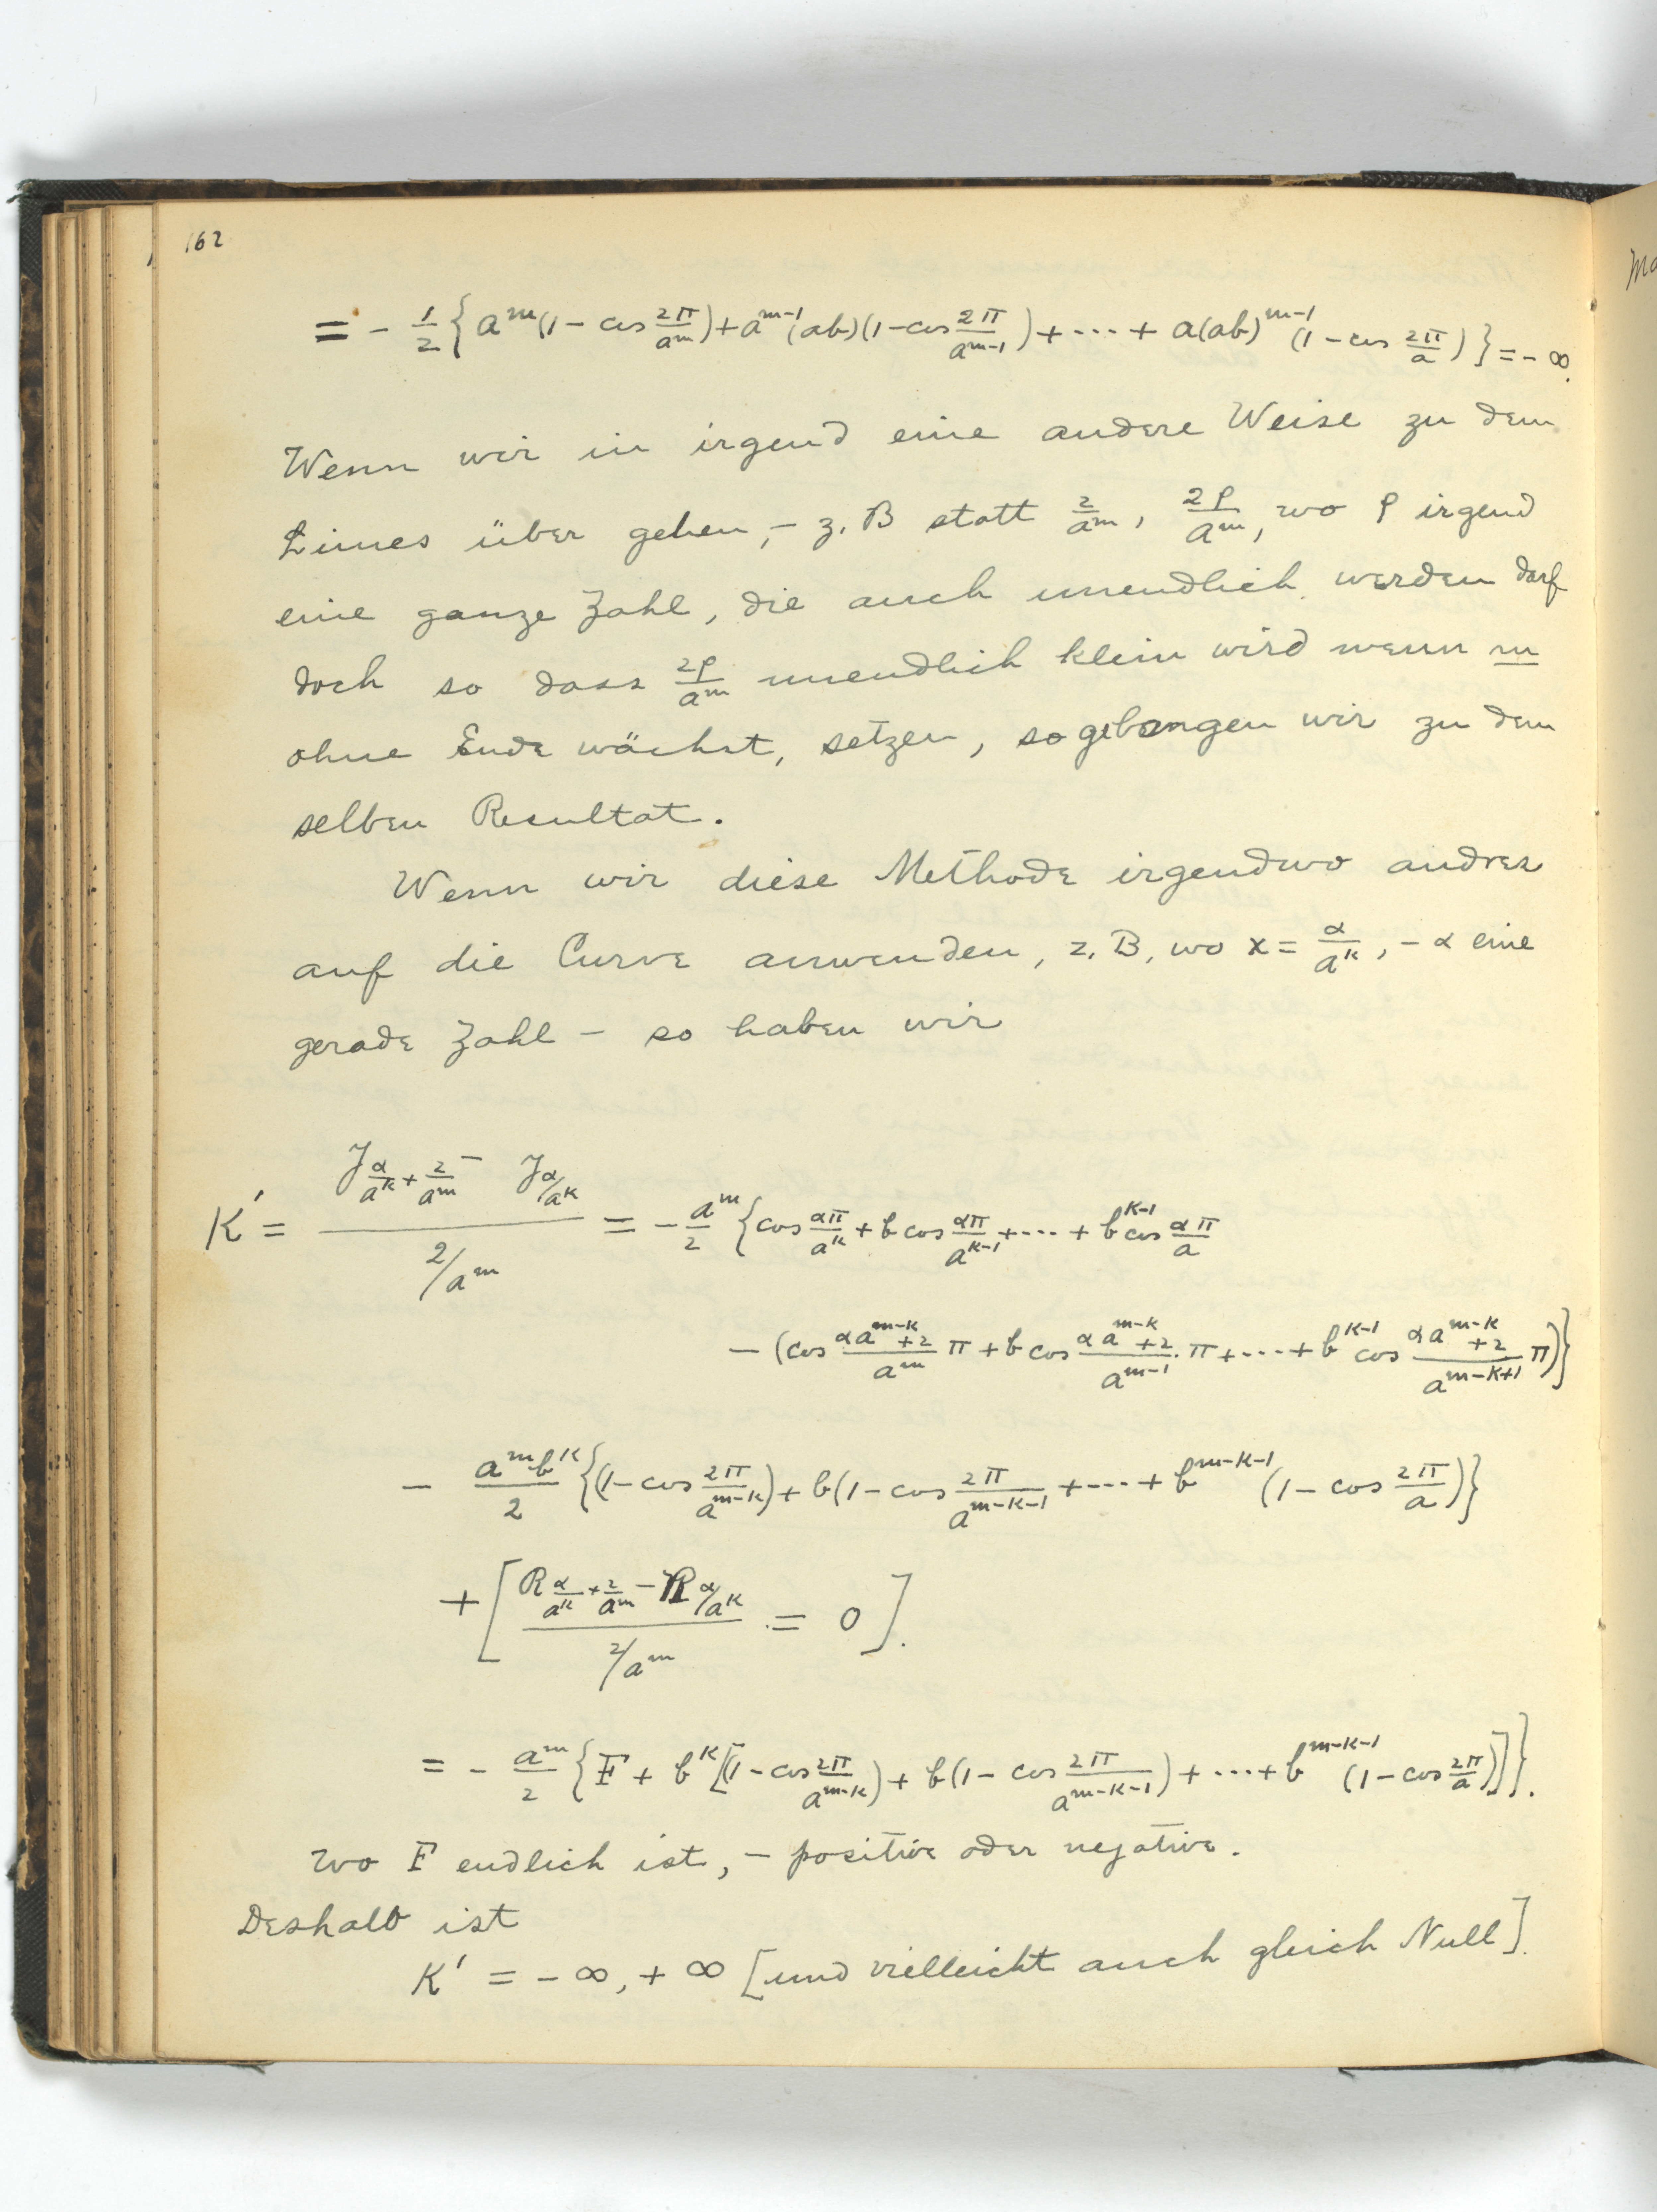 162
= - 1/2 { a^m (1 - cos 2π/a^m) + a^{m-1} (ab) (1 - cos 2π/a^{m-1}) + ··· + a(ab)^{m-1} (1 - cos 2π/a) } = - ∞.
Wenn wir in irgend eine andere Weise zu dem
Limes über gehen, - z. B statt 2/a^m, 2ρ/a^m, wo ρ irgend
eine ganze Zahl, die auch unendlich werden darf
doch so dass 2ρ/a^m unendlich klein wird wenn m
ohne Ende wächst, setzen, so gelangen wir zu dem
selben Resultat.
Wenn wir diese Methode irgendwo andres
auf die Curve anwenden, z. B, wo x = α/a^k, - α eine
gerade Zahl - so haben wir
K' = (J_{α/a^k + 2/a^m} - J_{α/a^k}) / (2/a^m) = - a^m/2 { cos απ/a^k + b cos απ/a^{k-1} + ··· + b^{k-1} cos απ/a
- (cos (αa^{m-k}+2)/a^m π + b cos (αa^{m-k}+2)/a^{m-1} · π + ··· + b^{k-1} cos (αa^{m-k}+2)/a^{m-k+1} π) }
- a^m b^k/2 { (1 - cos 2π/a^{m-k}) + b(1 - cos 2π/a^{m-k-1} + ··· + b^{m-k-1} (1 - cos 2π/a) }
+ [ (R_{α/a^k + 2/a^m} - R_{α/a^k}) / (2/a^m) = 0 ].
= - a^m/2 { F + b^k [(1 - cos 2π/a^{m-k}) + b(1 - cos 2π/a^{m-k-1}) + ··· + b^{m-k-1} (1 - cos 2π/a)] }.
wo F endlich ist, - positive oder negative.
Deshalb ist
K' = - ∞, + ∞ [und vielleicht auch gleich Null].